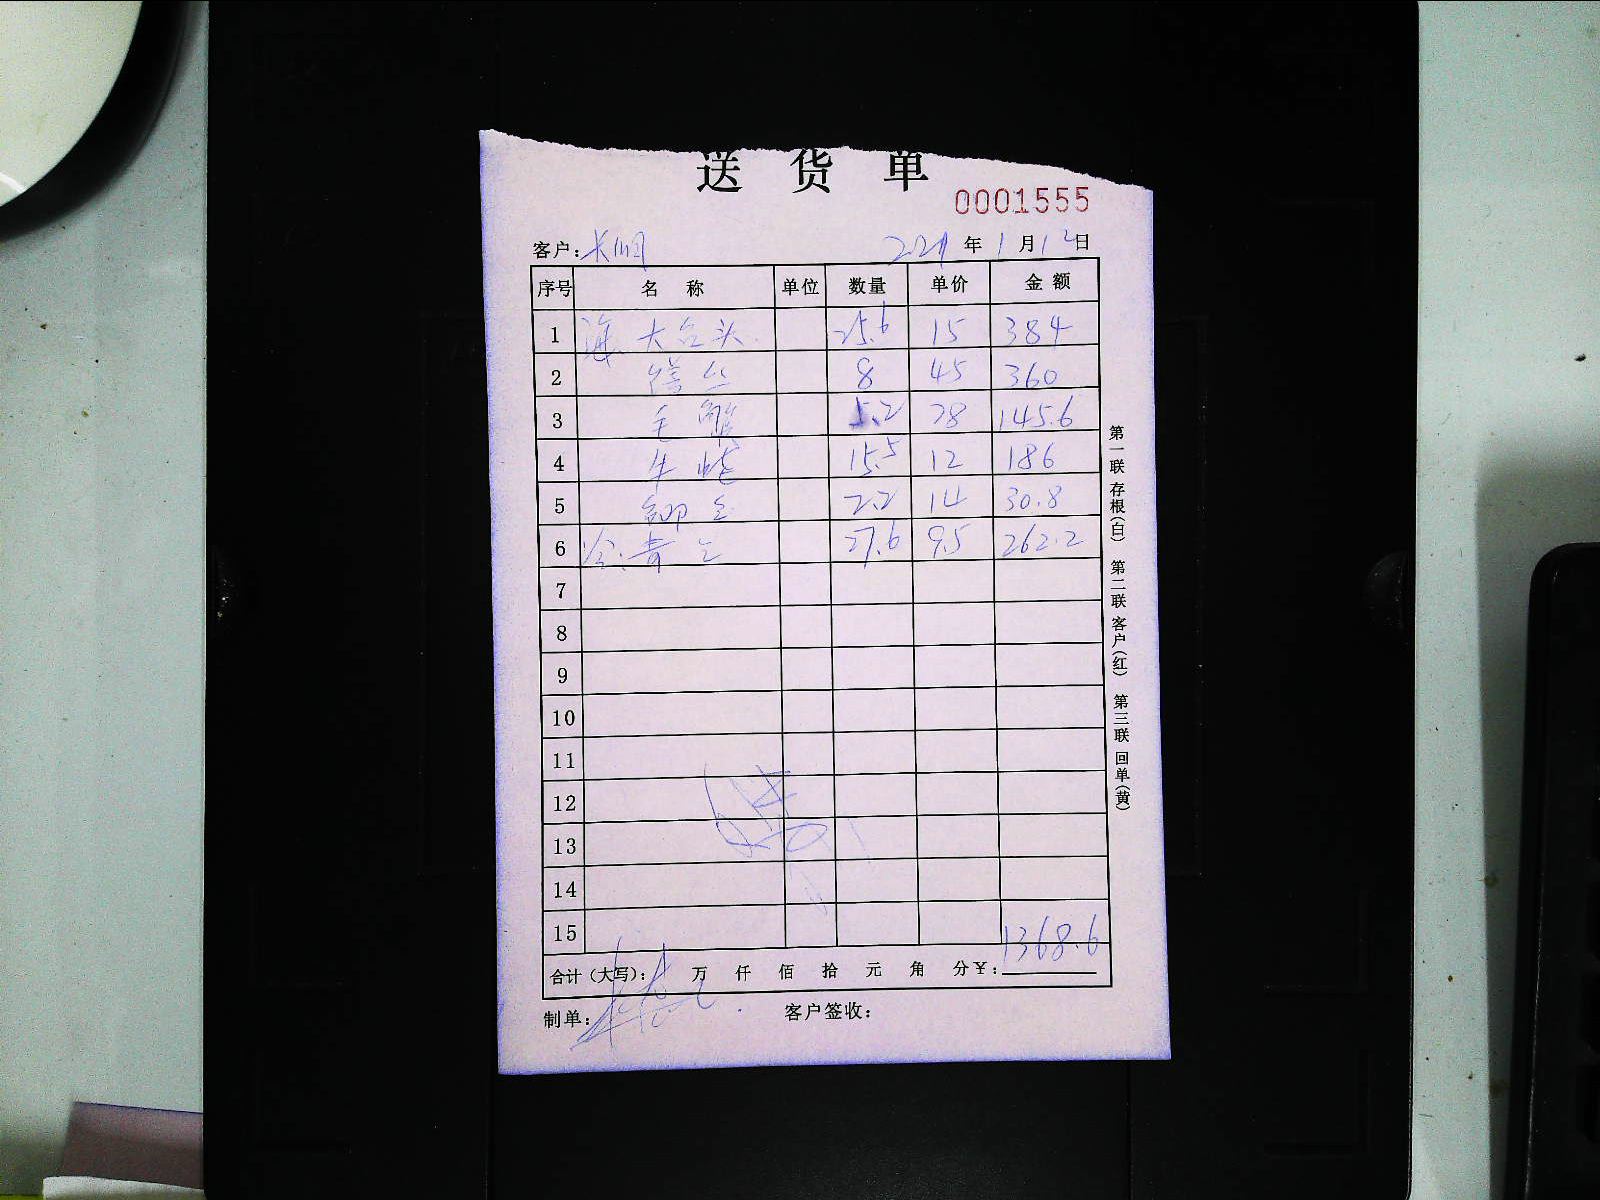 送货单
0001555
客户: 年 1月12日
序号 名称 单位 数量 单价 金额
1 海 大 头 25.6 15 384
2 8 45 360
3 毛蟹 5.2 28 145.6
4 牛蛙 15.5 12 186
5 2.2 14 30.8
6 冷.青 27.6 9.5 262.2
7
8
9
10
11
12
13
14
15
合计(大写): 万 仟 佰 拾 元 角 分¥: 1368.6
制单: 客户签收:
第一联 存根(白) 第二联 客户(红) 第三联 回单(黄)